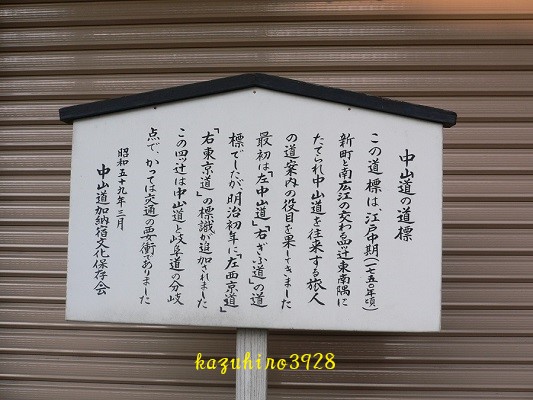 中山道の道標
この道標は、江戸中期(一七五〇年頃)
新町と南広江の交わる四ッ辻東南隅に
たてられ中山道を往来する旅人
の道案内の役目を果してきました
最初は「左中山道」「右ぎふ道」の道
標でしたが、明治初年に「左西京道」
「右東京道」の標識が追加されました
この四ッ辻は中山道と岐阜道の分岐
点で、かつては交通の要衝でありました
昭和五十九年三月
中山道加納宿文化保存会
kazuhiro3928